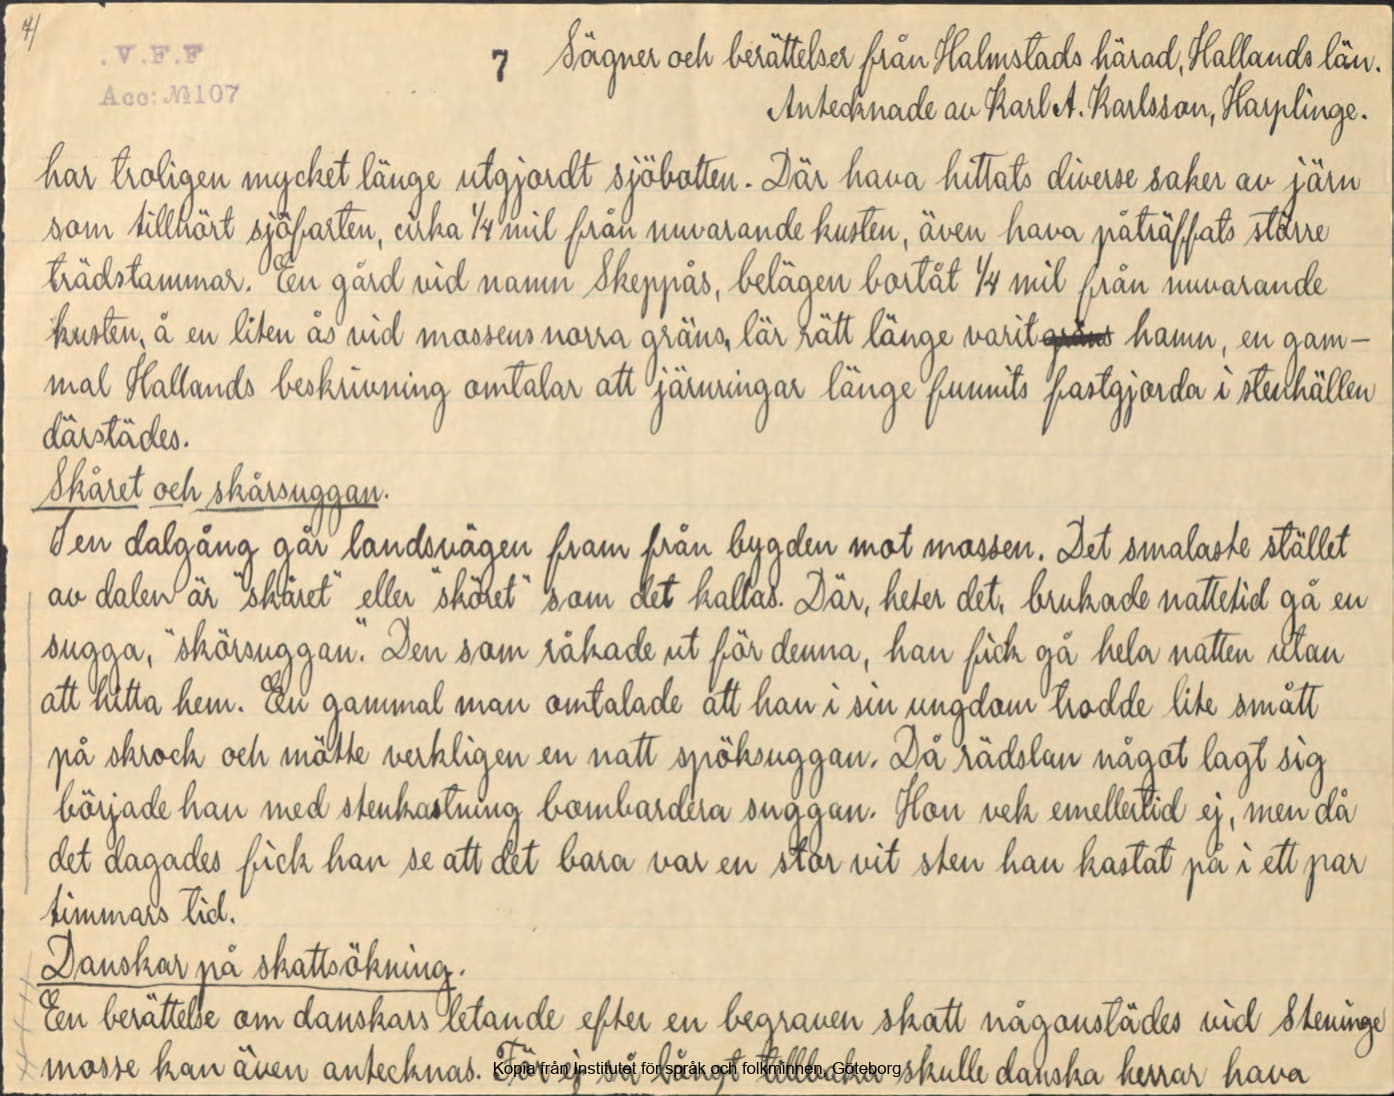 7/
.V.F.F
Acc: №107
7
Sägner och berättelser från Halmstads härad, Hallands län.
Antecknade av Karl A. Karlsson, Harplinge.
har troligen mycket länge utgjordt sjöbotten. Där hava hittats diverse saker av järn
som tillhört sjöfarten, cirka 1/4 mil från nuvarande kusten, även hava påträffats större
trädstammar. En gård vid namn Skeppås, belägen bortåt 1/4 mil från nuvarande
kusten, å en liten ås vid mossens norra gräns, lär rätt länge varit gräns hamn, en gam-
mal Hallands beskrivning omtalar att järnringar länge funnits fastgjorda i stenhällen
därstädes.
Skåret och skårsuggan.
I en dalgång går landsvägen fram från bygden mot mossen. Det smalaste stället
av dalen är "skåret" eller "sköret" som det kallas. Där, heter det, brukade nattetid gå en
sugga, "skörsuggan". Den som råkade ut för denna, han fick gå hela natten utan
att hitta hem. En gammal man omtalade att han i sin ungdom trodde lite smått
på skrock och mötte verkligen en natt spöksuggan. Då rädslan något lagt sig
började han med stenkastning bombardera suggan. Hon vek emellertid ej, men då
det dagades fick han se att det bara var en stor vit sten han kastat på i ett par
timmars tid.
Danskar på skattsökning.
En berättelse om danskars letande efter en begraven skatt någonstädes vid Steninge
mosse kan även antecknas. För ej så långt tillbaka skulle danska herrar hava
Kopia från Institutet för språk och folkminnen, Göteborg